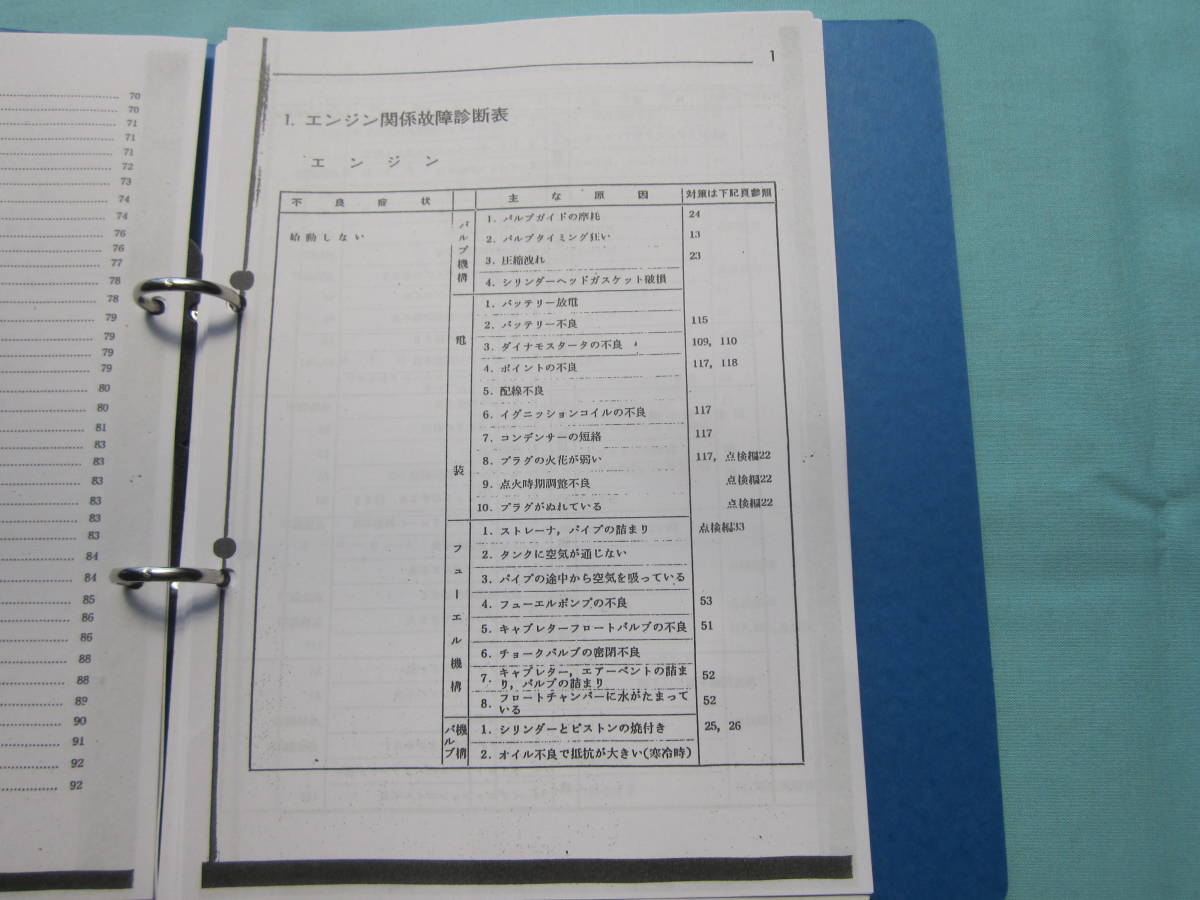 70
70
71
71
71
72
73
74
74
76
76
77
78
78
79
79
79
79
80
80
81
83
83
83
83
83
83
84
84
85
86
86
88
88
89
90
91
92
92
1
1. エンジン関係故障診断表
エンジン
不良症状 主な原因 対策は下記頁参照
始動しない
バルブ機構
1. バルブガイドの摩耗 24
2. バルブタイミング狂い 13
3. 圧縮洩れ 23
4. シリンダーヘッドガスケット破損
電装
1. バッテリー放電
2. バッテリー不良 115
3. ダイナモスタータの不良 109, 110
4. ポイントの不良 117, 118
5. 配線不良
6. イグニッションコイルの不良 117
7. コンデンサーの短絡 117
8. プラグの火花が弱い 117, 点検編22
9. 点火時期調整不良 点検編22
10. プラグがぬれている 点検編22
フューエル機構
1. ストレーナ, パイプの詰まり 点検編33
2. タンクに空気が通じない
3. パイプの途中から空気を吸っている
4. フューエルポンプの不良 53
5. キャブレターフロートバルブの不良 51
6. チョークバルブの密閉不良
7. キャブレター, エアーベントの詰ま
り, バルブの詰まり 52
8. フロートチャンバーに水がたまって
いる 52
バルブ機構
1. シリンダーとピストンの焼付き 25, 26
2. オイル不良で抵抗が大きい(寒冷時)